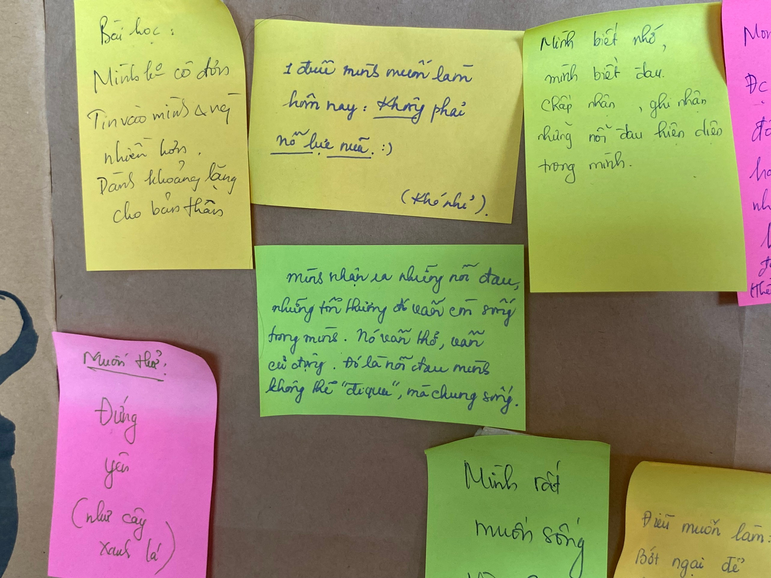 Bài học:
Mình ko cô đơn
Tin vào mình & mn
nhiều hơn.
Dành khoảng lặng
cho bản thân
1 điều mình muốn làm
hôm nay: Không phải
nỗ lực nữa. :)
(Khó nhỉ).
Mình biết nhớ,
mình biết đau.
Chấp nhận, ghi nhận
những nỗi đau hiện diện
trong mình.
mình nhận ra những nỗi đau,
những tổn thương đó vẫn còn sống
trong mình. Nó vẫn thở, vẫn
cử động. Đó là nỗi đau mình
không thể "đi qua", mà chung sống.
Muốn thở:
Đứng
yên
(như cây
xanh lá)
Mình rất
muốn sống
Điều muốn làm:
Bớt ngại để